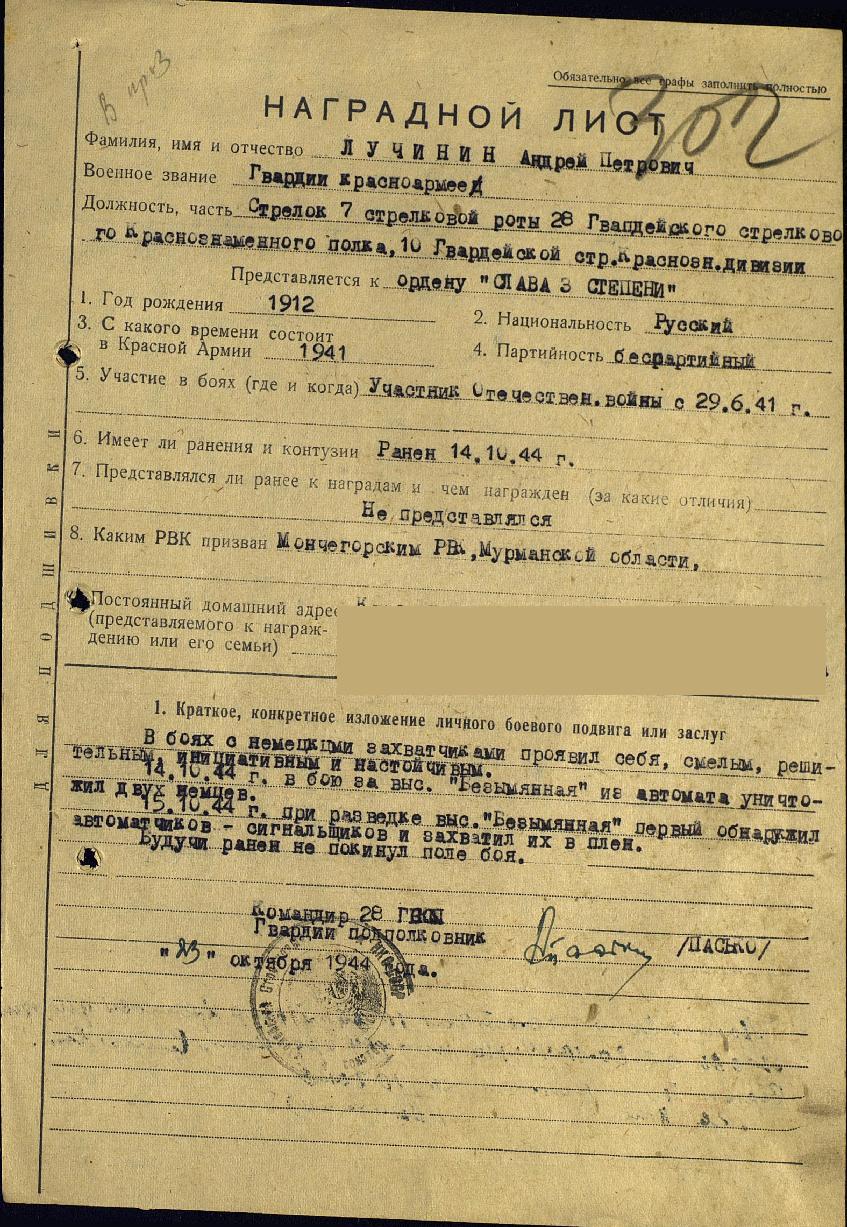 В приз
Обязательно все графы заполнить полностью
302
НАГРАДНОЙ ЛИСТ
Фамилия, имя и отчество ЛУЧИНИН Андрей Петрович
Военное звание Гвардии красноармеец
Должность, часть Стрелок 7 стрелковой роты 28 Гвардейского стрелково
го Краснознаменного полка, 10 Гвардейской стр.Краснозн.дивизии
Представляется к ордену "СЛАВА 3 СТЕПЕНИ"
1. Год рождения 1912
2. Национальность Русский
3. С какого времени состоит
в Красной Армии 1941
4. Партийность беспартийный
5. Участие в боях (где и когда) Участник Отечествен.войны с 29.6.41 г.
6. Имеет ли ранения и контузии Ранен 14.10.44 г.
7. Представлялся ли ранее к наградам и чем награжден (за какие отличия)
Не представлялся
8. Каким РВК призван Мончегорским РВК, Мурманской области,
Постоянный домашний адрес
(представляемого к награж-
дению или его семьи)
ДЛЯ ПОДШИВКИ
1. Краткое, конкретное изложение личного боевого подвига или заслуг
В боях с немецкими захватчиками проявил себя, смелым, реши-
тельным, инициативным и настойчивым.
14.10.44 г. в бою за выс. "Безымянная" из автомата уничто-
жил двух немцев.
15.10.44 г. при разведке выс."Безымянная" первый обнаружил
автоматчиков - сигнальщиков и захватил их в плен.
Будучи ранен не покинул поле боя.
Командир 28 ГКСП
Гвардии подполковник /ПАСЬКО/
"23" октября 1944 года.